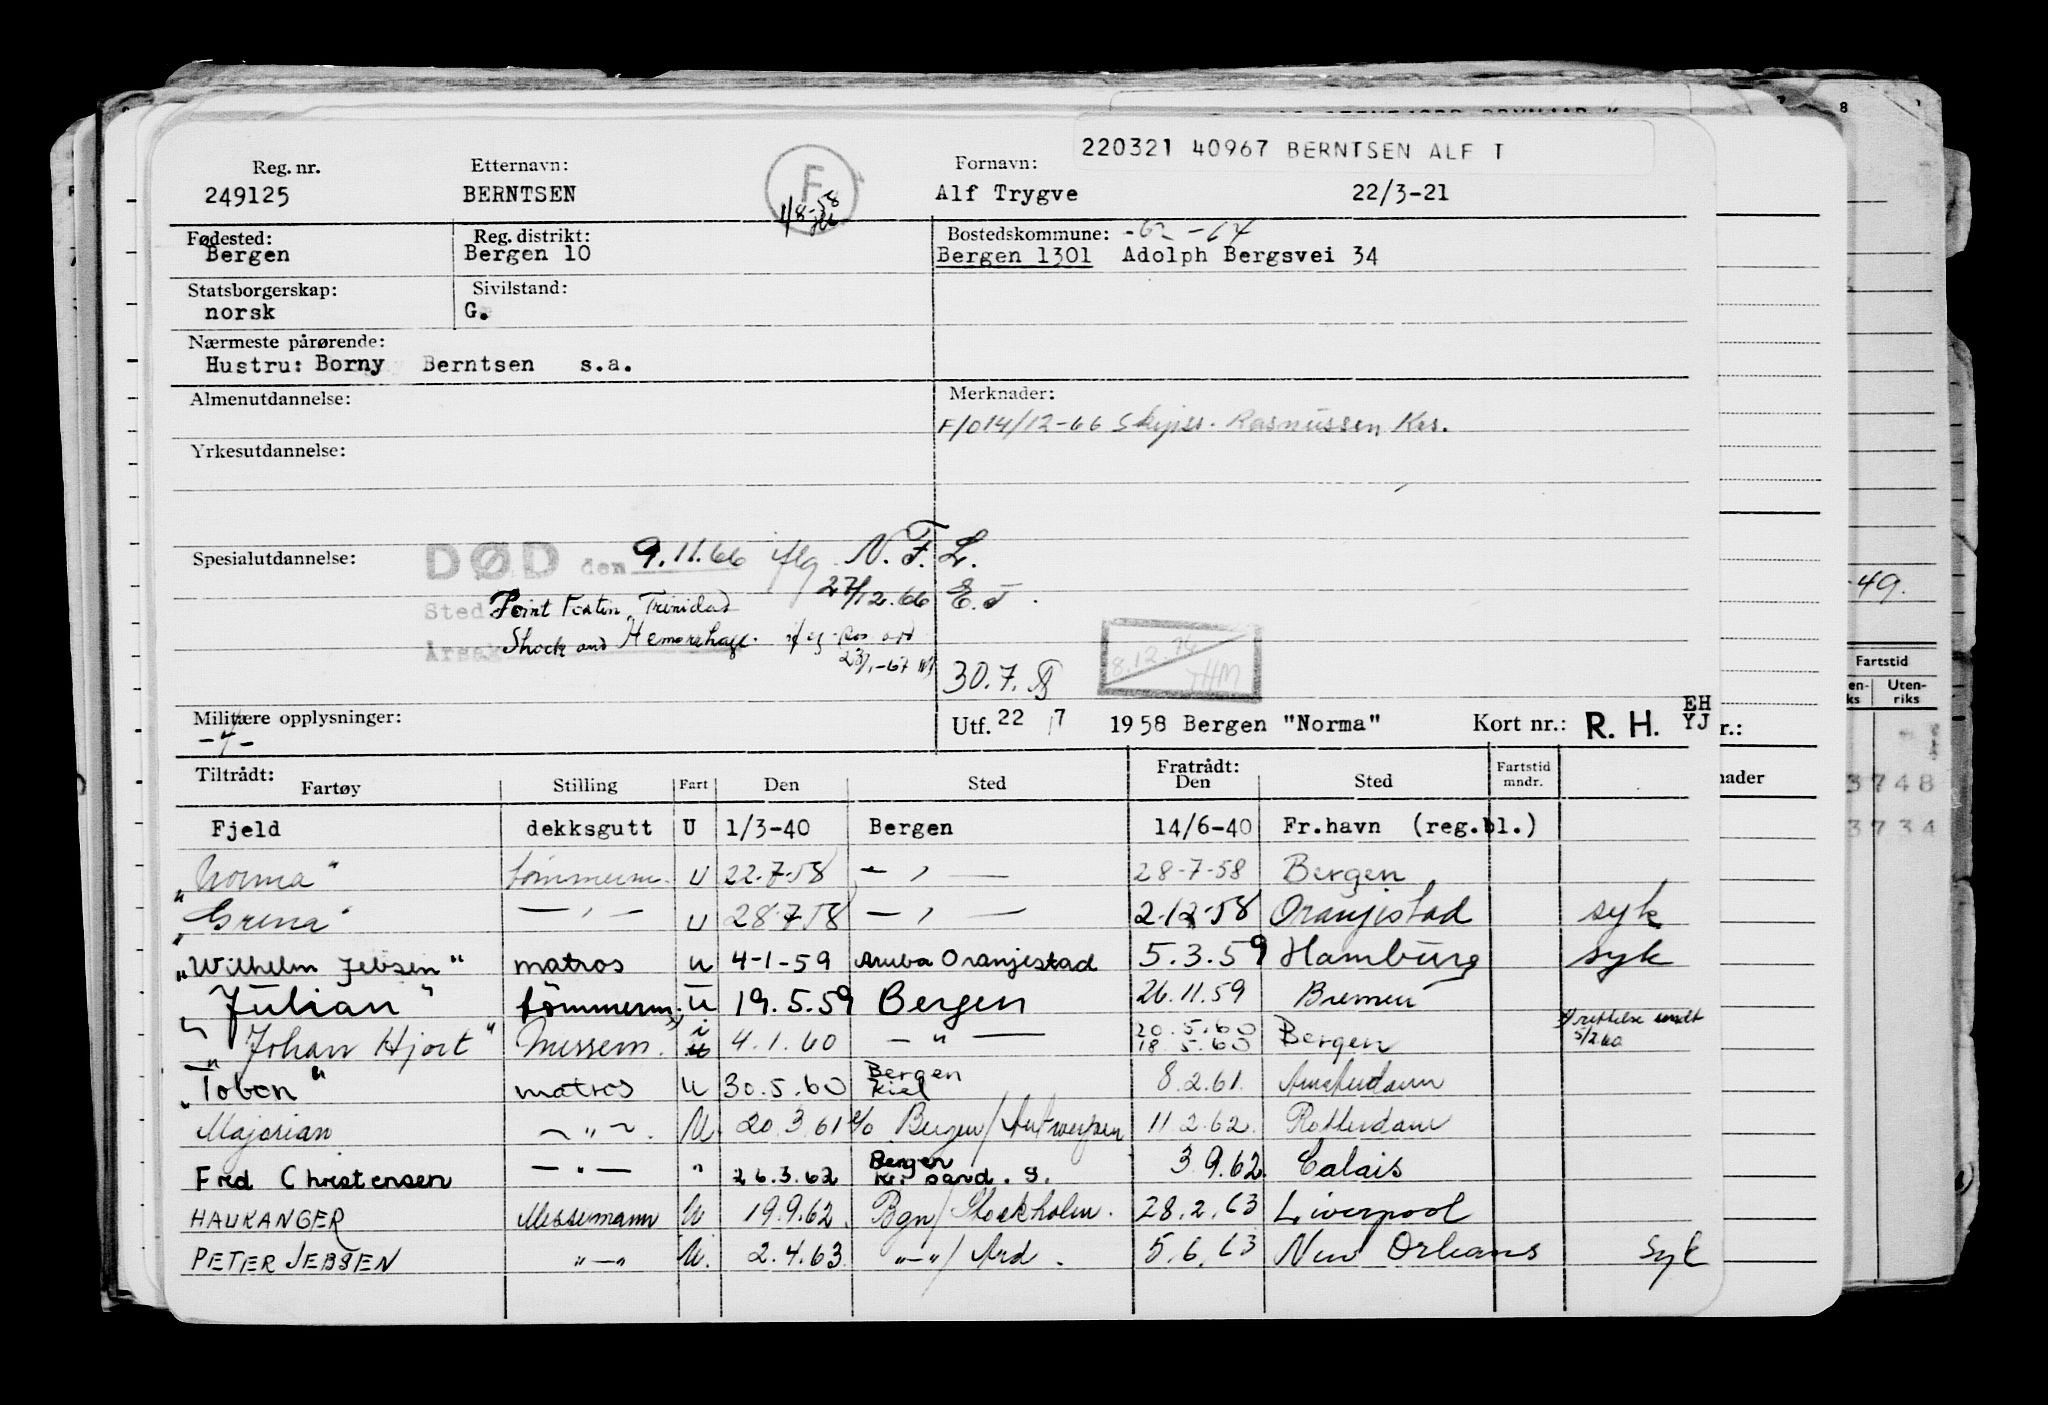 220321 40967 BERNTSEN ALF T
Reg. nr. Etternavn: Fornavn:
249125 BERNTSEN F Alf Trygve 22/3-21
1/8-58
Fødested: Reg. distrikt: Bostedskommune: -62 -64
Bergen Bergen 10 Bergen 1301 Adolph Bergsvei 34
Statsborgerskap: Sivilstand:
norsk G.
Nærmeste pårørende:
Hustru: Borny Berntsen s.a.
Almenutdannelse: Merknader:
F/014/12-66 Skipsr. Rasmussen Krs.
Yrkesutdannelse:
Spesialutdannelse: DØD den 9.11.66 iflg. N.F.L.
27/12.66 E.J.
Sted Point Fortin, Trinidad
Årsak Shock and Hemorrhage. iflg.
30.7.
Militære opplysninger:
Utf. 22 7 1958 Bergen "Norma" Kort nr.: R. H. EH YJ r.:
Tiltrådt: Fratrådt: Fartstid
Fartøy Stilling Fart Den Sted Den Sted mndr. nader
Fjeld dekksgutt U 1/3-40 Bergen 14/6-40 Fr.havn (reg.bl.)
"Norma" tømmerm. U 22.7.58 — " — 28-7-58 Bergen
"Grena" — " — U 28.7.58 — " — 2.12.58 Oranjestad syk
"Wilhelm Jebsen" matros u 4-1-59 Aruba Oranjestad 5.3.59 Hamburg syk
"Julian" tømmerm. u 19.5.59 Bergen 26.11.59 Bremen
"Johan Hjort" Messem. i 4.1.60 — " — 20.5.60 18.5.60 Bergen rettelse sendt 5/2 60
"Toben" matros u 30.5.60 Bergen Kiel 8.2.61. Amsterdam
Majorian — " — U 20.3.61 Bergen/Antwerpen 11.2.62. Rotterdam
Fred Christensen — " — " 26.3.62 Bergen Kr. sand. S. 3.9.62. Calais
HAUKANGER Messemann U 19.9.62. Bgn/Stockholm. 28.2.63 Liverpool
PETER JEBSEN " — " U. 2.4.63 " — " / Ard. 5.6.63 New Orleans syk
8
-49.
Fartstid
Uten-
riks
3748
3734